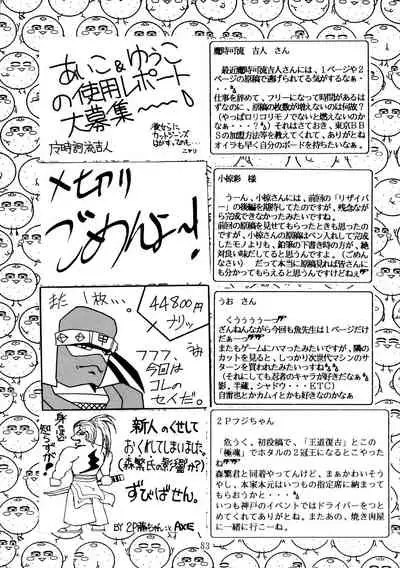 あいこ&ゆうこ
の使用レポート
大募集〜〜
メセアリ
ごめんよ〜!
また1枚…。
44800円
ナリッ
フフフ、
今回は
コレの
セイだ。
新人のくせして
おくれてしまいました。
(森繁氏の影響か?)
ずびばせん。
BY 2P藤ちゃんこと AXE
魔時可流 吉人 さん
最近魔時可流吉人さんには、1ページや2
ページの原稿で逃げられてる気がするなぁ…
仕事を辞めて、フリーになって時間があるは
ずなのに、原稿の枚数が増えないのは何故?
(やっぱロリコロリモノでないと燃えないのか
なぁ・・・?) それはさておき、東京BBS
の加盟方法等を教えてくれて、ありがとね
オイラも早く自分のボードを持ちたいなぁ。
小椋彩 様
うーん。小椋さんには、前回の「リザイバ
ー」の後編を期待してたのですが、残念なが
ら完成できなかったみたいですね。
前回の原稿を見せてもらったときも思ったの
ですが、小椋さんの原稿はペン入れして完成
したモノよりも、鉛筆の下書き時の方が、絶
対良い味だしてると思うんですが。(ごめん
なさい) だって本当に原稿見れば皆さんに
も分かってもらえると思うんですけどねェ
うお さん
くうううぅー
ざんねんながら今回も魚先生は1ページだけ
だぁー
またもゲームにハマったみたいですが、隣の
カットを見ると、しっかり次世代マシンのサタ
ーンを買われたみたいっスね
(それにしても忍者のキャラが好きだなぁ
影、半蔵、シャドウ・・・ETC)
白雷也とかカムイとかも好きなのかなぁ
2Pフジちゃん
危うく、初投稿で、「王道復古」とこの
「極魂」でホタルの2冠王になるとこだったね
森繁君と同着やってんけど、まぁかわいそう
やし、本家本元はいつもの指定席に納まって
もらおうかと・・・
いつも神戸のイベントではドライバーをつと
めてくれてありがとね。またあの、焼き肉屋
に一緒に行こーね。
83